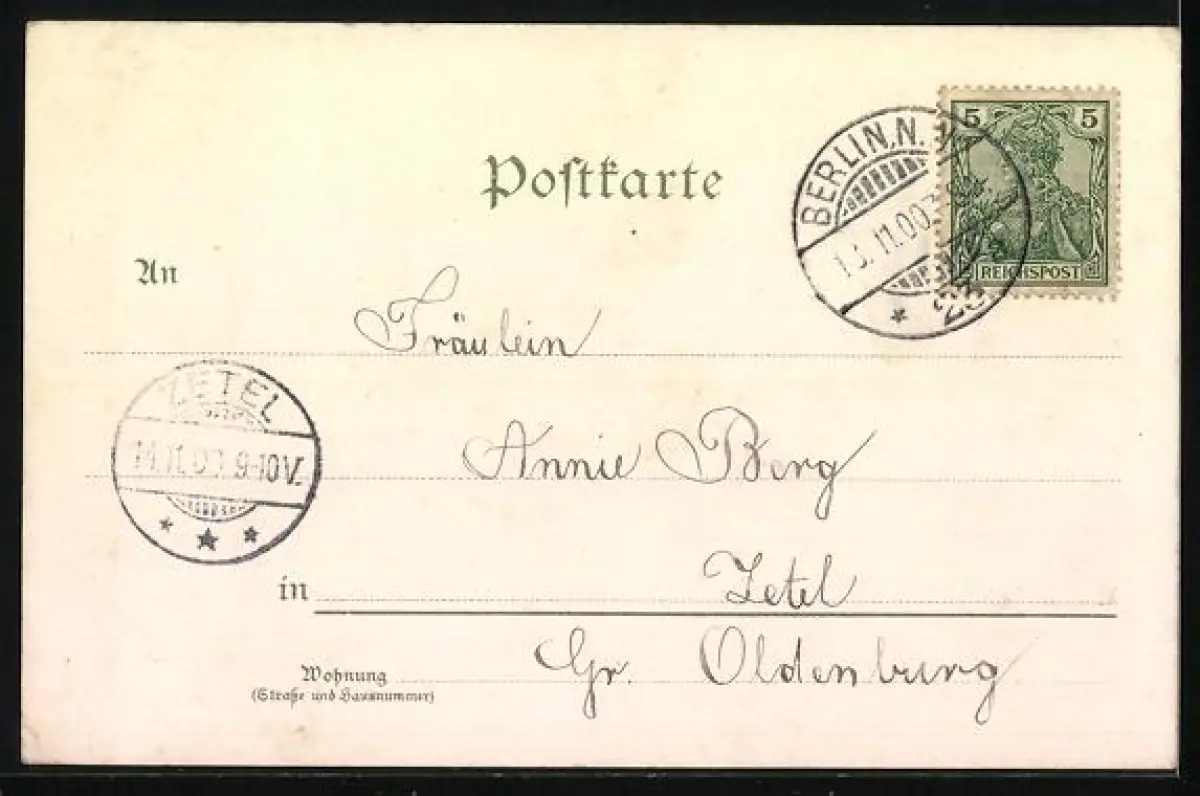 Postkarte
BERLIN, N.
13.11.00
5 5
REICHSPOST
An
Fräulein
ZETEL
14.11.00 9-10V.
Annie Berg
in Zetel
Gr. Oldenburg
Wohnung
(Straße und Hausnummer)